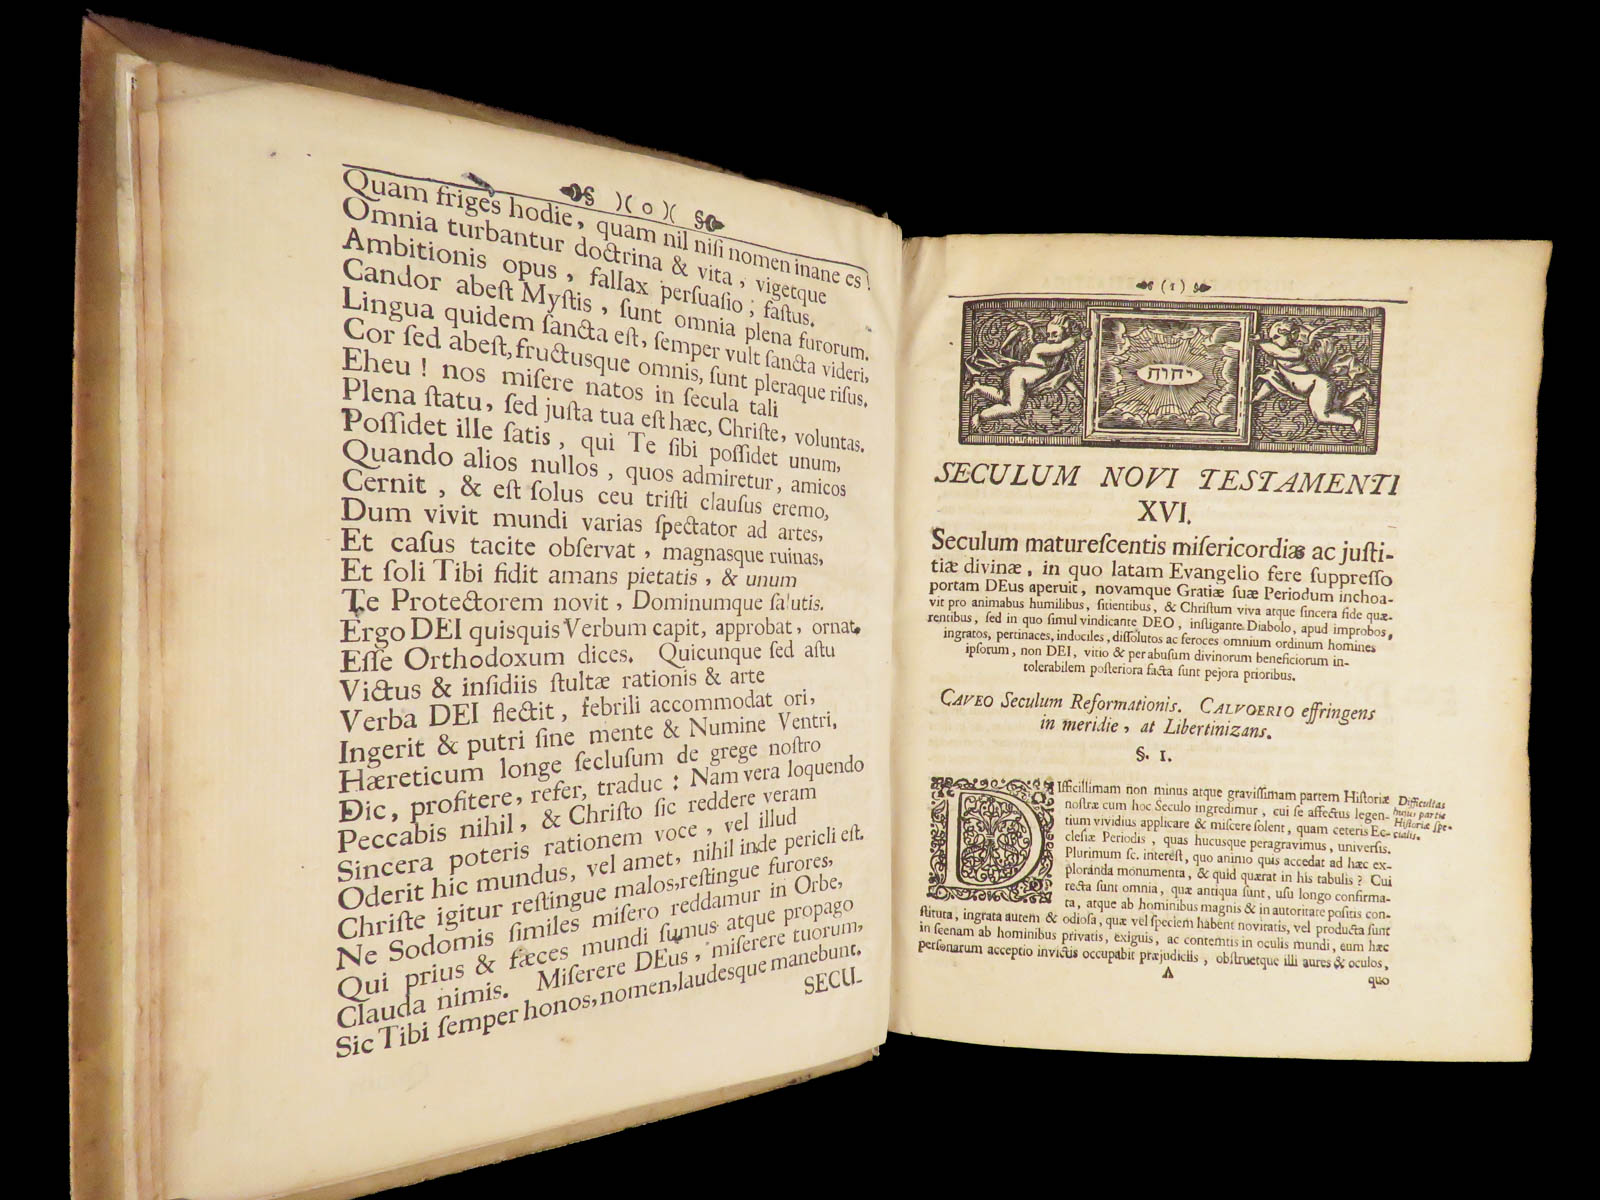 )( o )(
Quam friges hodie, quam nil niſi nomen inane es!
Omnia turbantur doctrina & vita, vigetque
Ambitionis opus, fallax perſuaſio; faſtus.
Candor abeſt Myſtis, ſunt omnia plena furorum.
Lingua quidem ſancta eſt, ſemper vult ſancta videri,
Cor ſed abeſt, fructusque omnis, ſunt pleraque riſus.
Eheu! nos miſere natos in ſecula tali
Plena ſtatu, ſed juſta tua eſt hæc, Chriſte, voluntas.
Poſſidet ille ſatis, qui Te ſibi poſſidet unum,
Quando alios nullos, quos admiretur, amicos
Cernit, & eſt ſolus ceu triſti clauſus eremo,
Dum vivit mundi varias ſpectator ad artes,
Et caſus tacite obſervat, magnasque ruinas,
Et ſoli Tibi fidit amans pietatis, & unum
Te Protectorem novit, Dominumque ſalutis.
Ergo DEI quisquis Verbum capit, approbat, ornat,
Eſſe Orthodoxum dices. Quicunque ſed aſtu
Victus & inſidiis ſtultæ rationis & arte
Verba DEI flectit, febrili accommodat ori,
Ingerit & putri ſine mente & Numine Ventri,
Hæreticum longe ſecluſum de grege noſtro
Dic, profitere, refer, traduc: Nam vera loquendo
Peccabis nihil, & Chriſto ſic reddere veram
Sincera poteris rationem voce, vel illud
Oderit hic mundus, vel amet, nihil inde pericli eſt.
Chriſte igitur reſtingue malos, reſtingue furores,
Ne Sodomis ſimiles miſero reddamur in Orbe,
Qui prius & fæces mundi ſumus atque propago
Clauda nimis. Miſerere DEus, miſerere tuorum,
Sic Tibi ſemper honos, nomen, laudesque manebunt.
SECU-
(1)
יהוה
SECULUM NOVI TESTAMENTI
XVI.
Seculum matureſcentis miſericordiæ ac juſti-
tiæ divinæ, in quo latam Evangelio fere ſuppreſſo
portam DEus aperuit, novamque Gratiæ ſuæ Periodum inchoa-
vit pro animabus humilibus, ſitientibus, & Chriſtum viva atque ſincera fide quæ-
rentibus, ſed in quo ſimul vindicante DEO, inſtigante Diabolo, apud improbos,
ingratos, pertinaces, indociles, diſſolutos ac feroces omnium ordinum homines
ipſorum, non DEI, vitio & per abuſum divinorum beneficiorum in-
tolerabilem poſteriora facta ſunt pejora prioribus.
CAVEO Seculum Reformationis. CALVOERIO effringens
in meridie, at Libertinizans.
§. 1.
Difficillimam non minus atque graviſſimam partem Hiſtoriæ
noſtræ cum hoc Seculo ingredimur, cui ſe affectus legen-
tium vividius applicare & miſcere ſolent, quam ceteris Ec-
cleſiæ Periodis, quas hucusque peragravimus, univerſis.
Plurimum ſc. intereſt, quo animo quis accedat ad hæc ex-
ploranda monumenta, & quid quærat in his tabulis? Cui
recta ſunt omnia, quæ antiqua ſunt, uſu longo confirma-
ta, atque ab hominibus magnis & in autoritate poſitis con-
ſtituta, ingrata aurem & odioſa, quæ vel ſpeciem habent novitatis, vel producta ſunt
in ſcenam ab hominibus privatis, exiguis, ac contemtis in oculis mundi, eum hæc
perſonarum acceptio invictis occupabit præjudiciis, obſtruetque illi aures & oculos,
A
quo
Difficultas
hujus partis
Hiſtoriæ ſpe-
cialis.